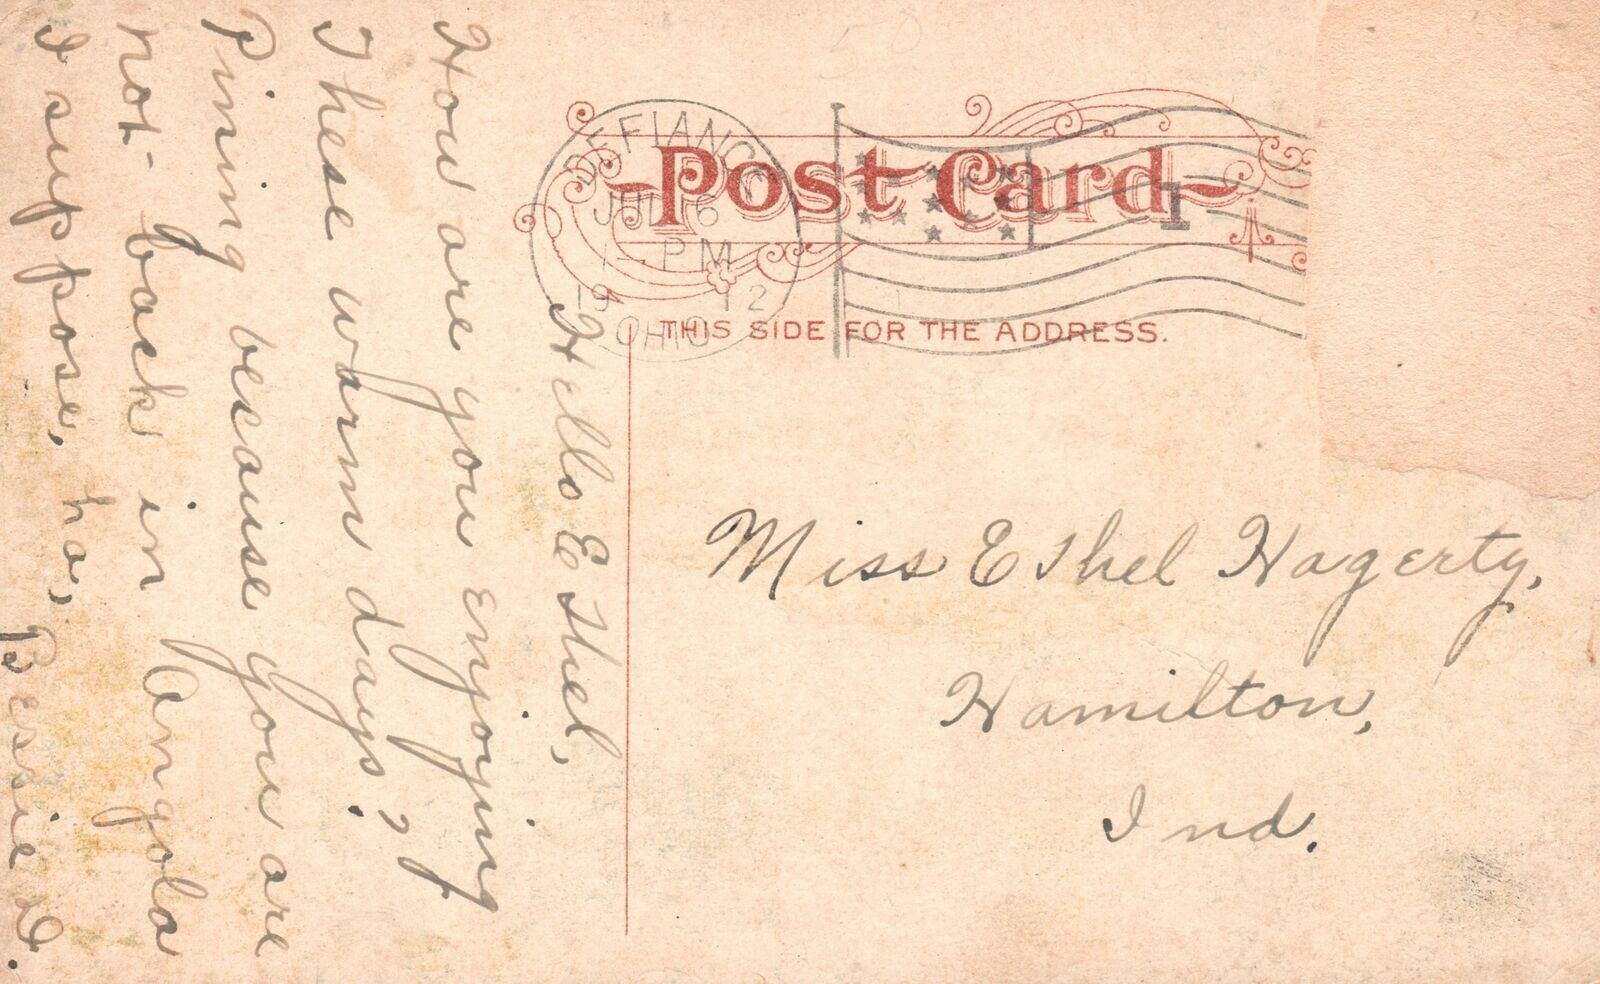 DEFIANCE
JUL 16
1 - PM
1912
OHIO
1
Post Card
THIS SIDE FOR THE ADDRESS.
Hello Ethel,
How are you enjoying
These warm days?
Pining because you are
not back in Angola
I suppose, ha,
Bessie D.
Miss Ethel Hagerty,
Hamilton,
Ind.